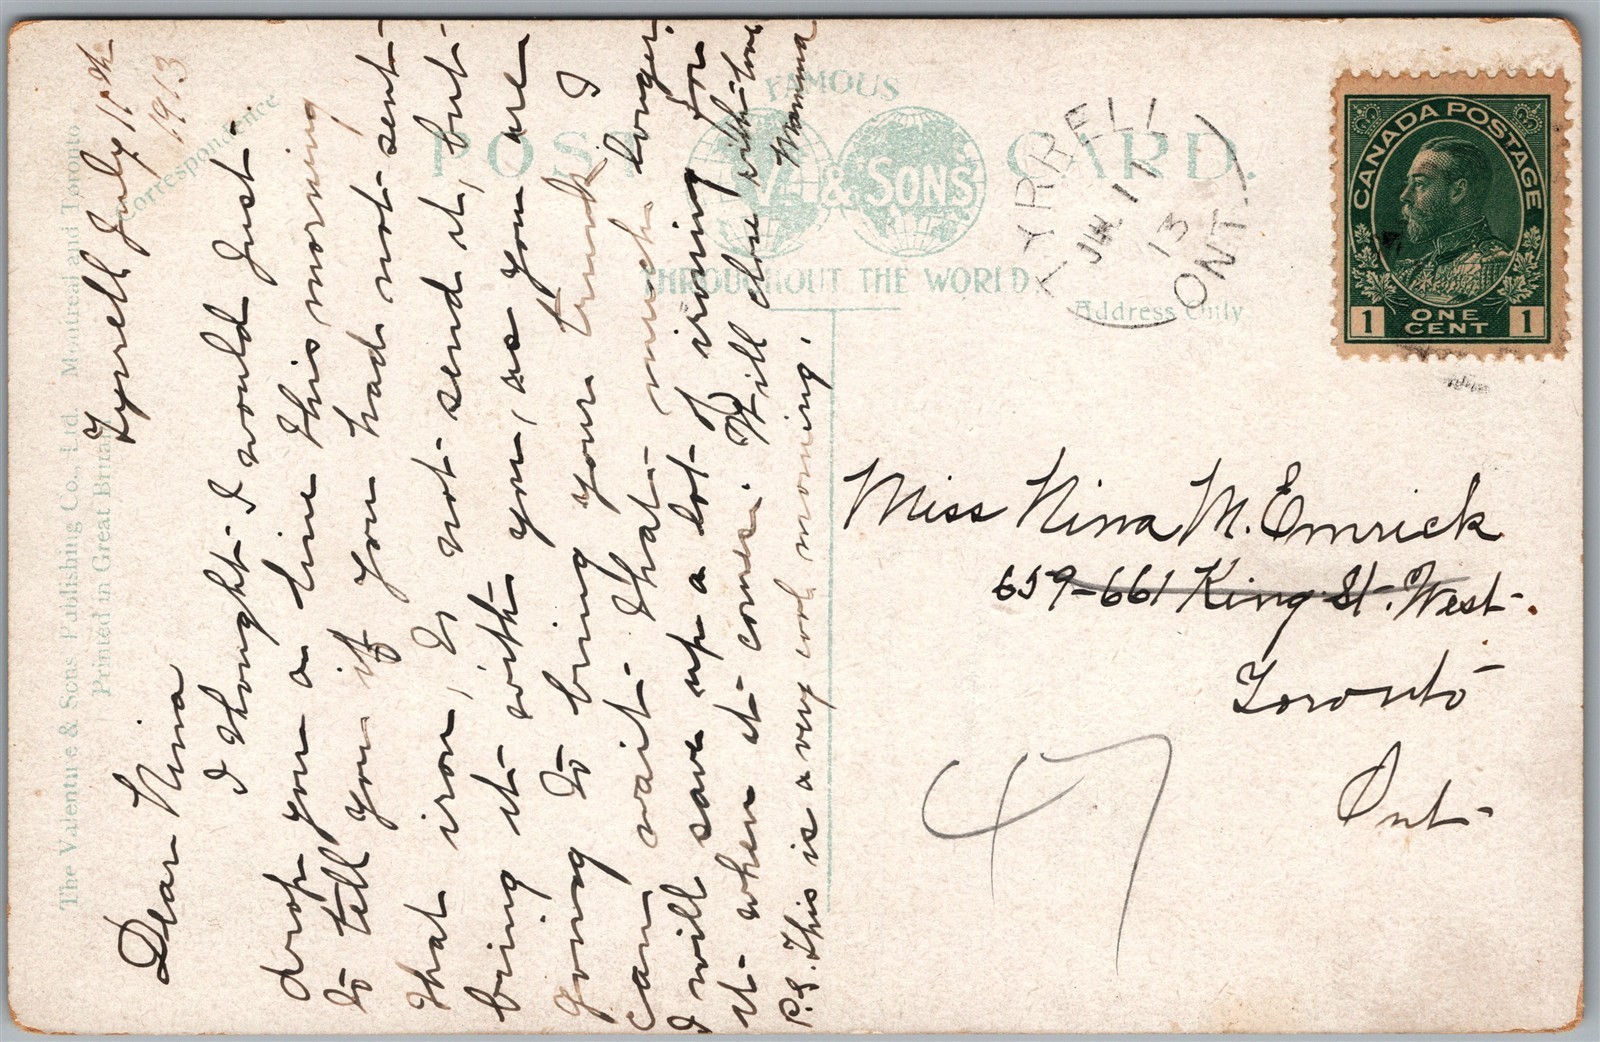 Tyrrell July 11th
1913
Dear Nina
I thought I would Just
drop you a line this morning
to tell you if you had not sent
that iron, to not send it, but
bring it with you, as you are
going to bring your trunk I
can wait that much longer.
I will save up a lot of ironing for
it when it comes. Will close with love
Mamma
P.S. This is a very cool morning.
Correspondence
The Valentine & Sons Publishing Co., Ltd. Montreal and Toronto.
Printed in Great Britain
FAMOUS
POST CARD.
V & SONS
THROUGHOUT THE WORLD
Address Only
TYRRELL
JUL 11
13
ONT.
CANADA POSTAGE
1 ONE CENT 1
Miss Nina M. Emrick
659-661 King St. West.
Toronto
Ont.
47